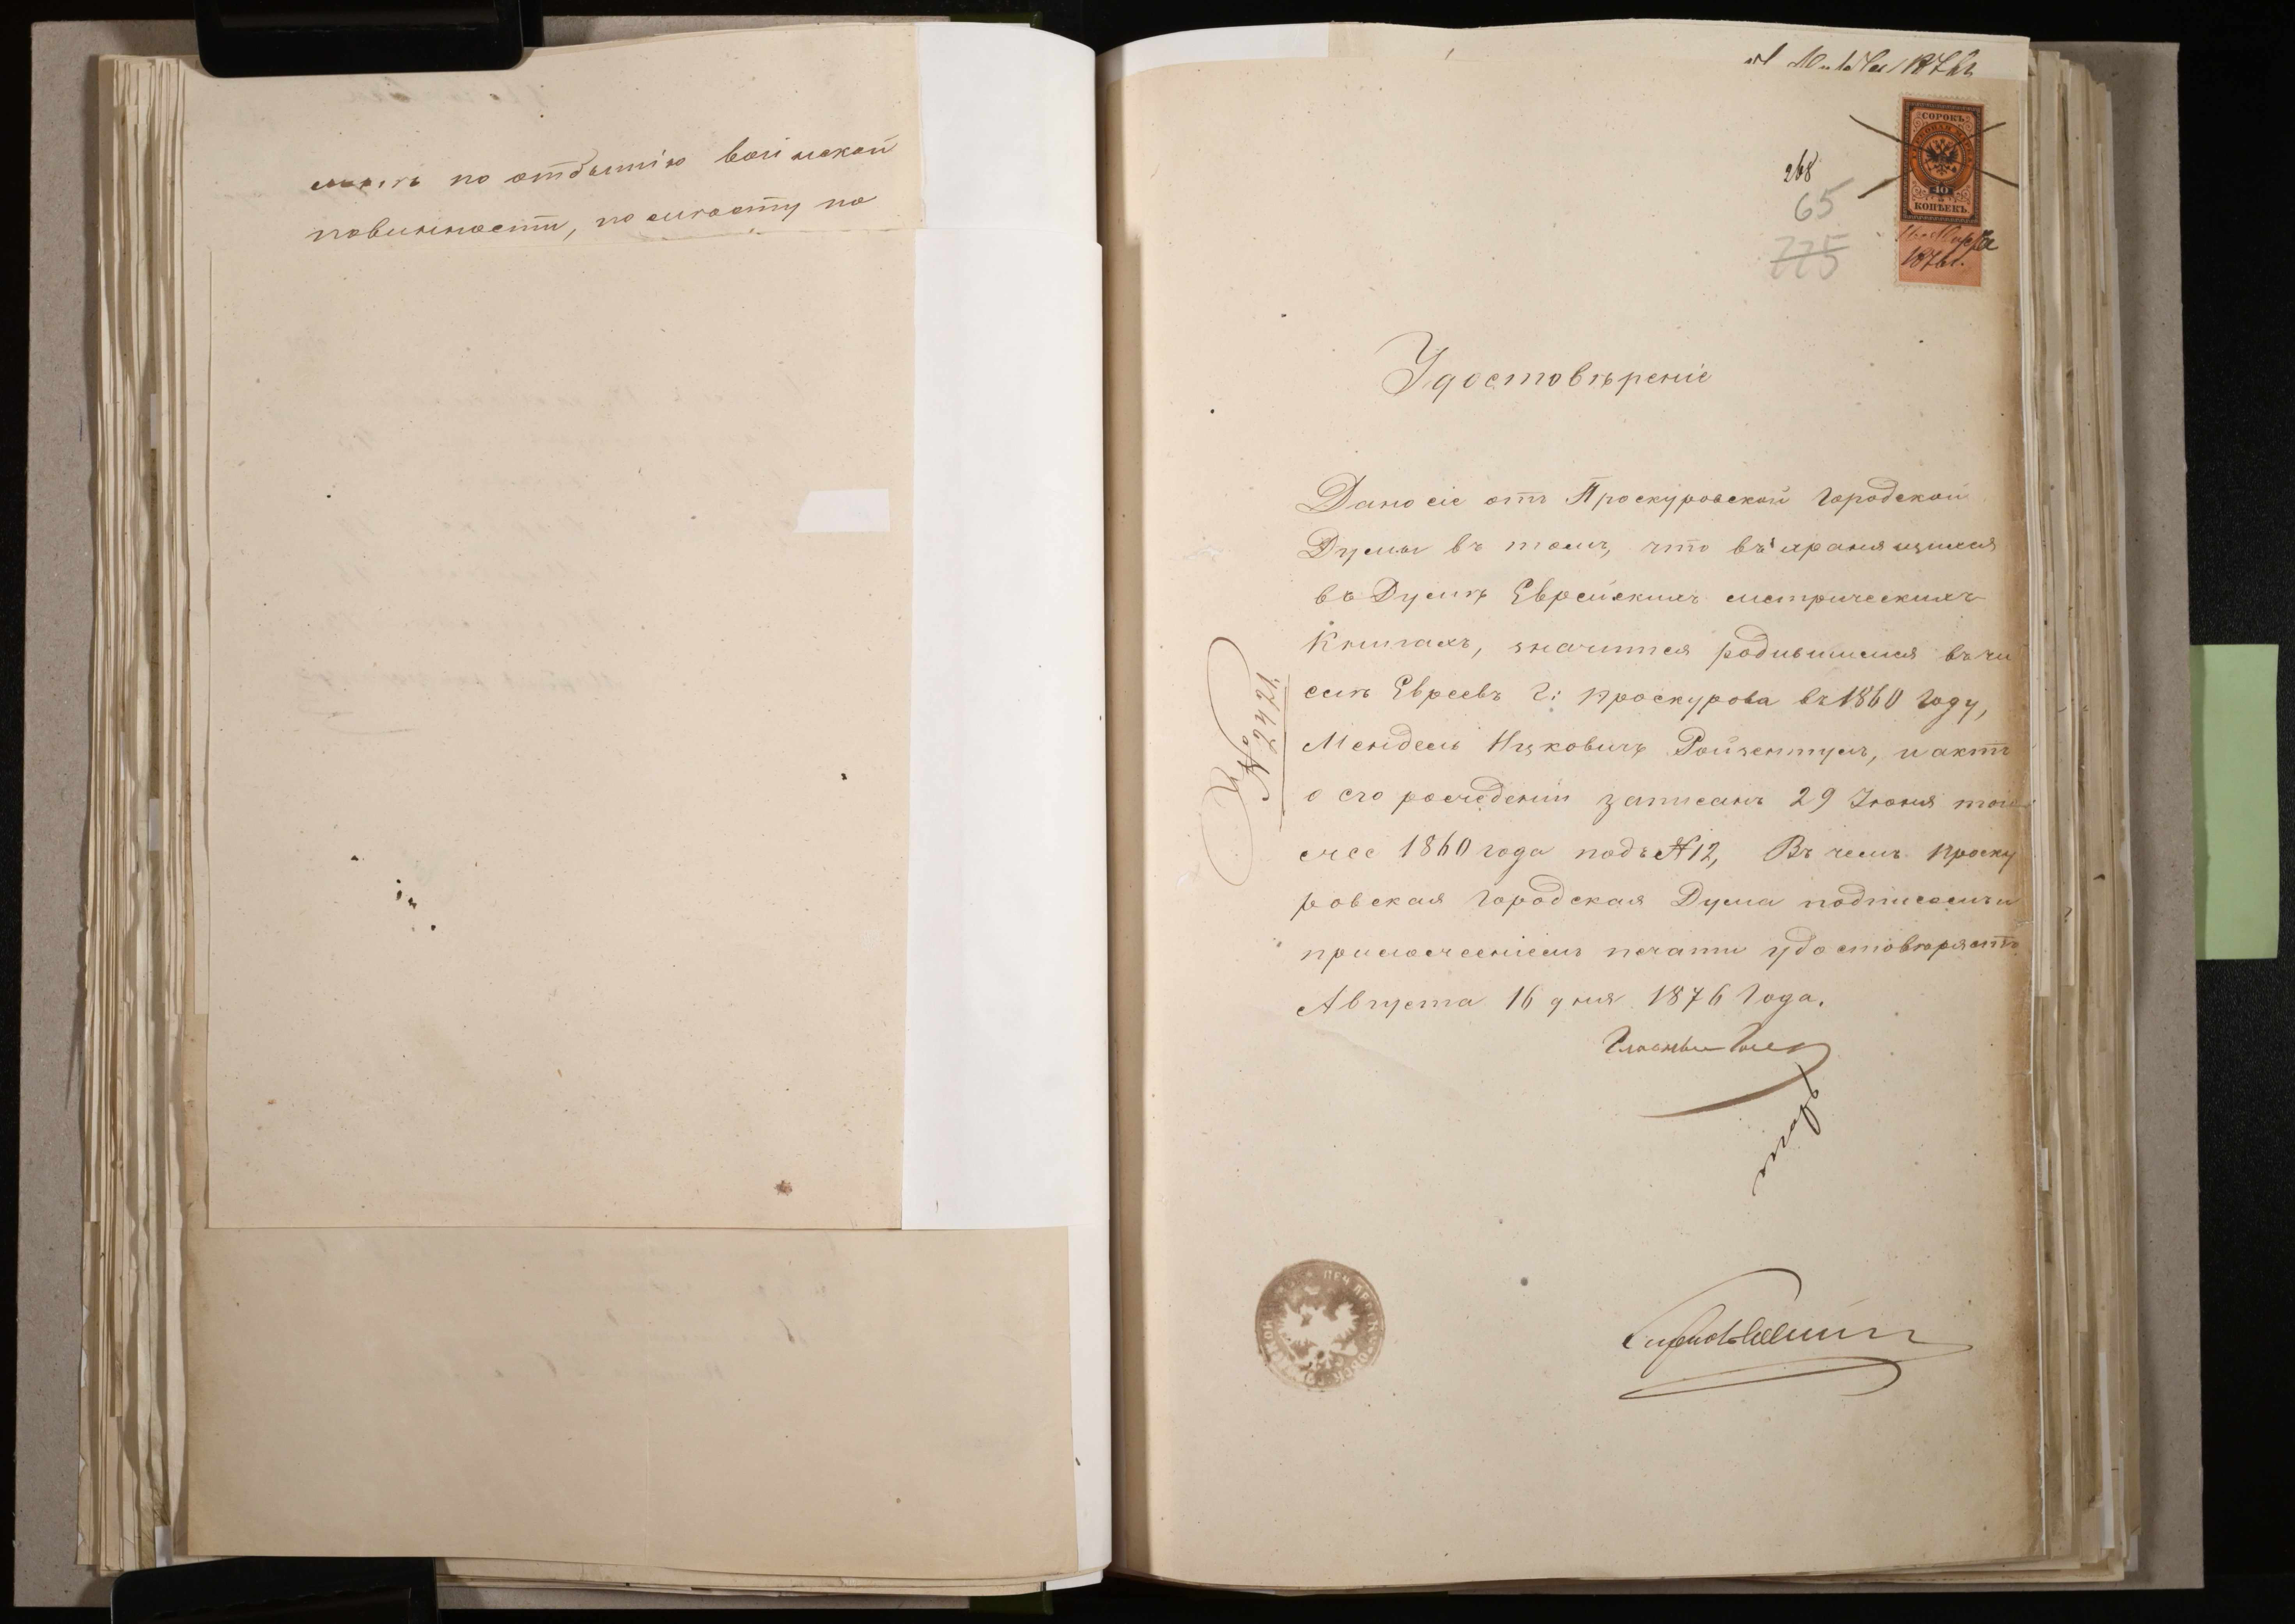 по отбытію воинской
повинности, по участку по
1876
268
65
775
СОРОКЪ
40
КОПѢЕКЪ
Марта
1876 г.
Удостовѣреніе
Дано сіе отъ Проскуровской Городской
Думы въ томъ, что въ хранящихся
въ Думѣ Еврейскихъ метрическихъ
Книгахъ, значится родившимся въ чи
слѣ Евреевъ Г: Проскурова въ 1860 Году,
Мендель Ицковичъ Ройзентулъ, и актъ
о его рожденіи записанъ 29 Іюня того
же 1860 года подъ № 12, Въ чемъ Проску
ровская Городская Дума подписомъ и
приложеніемъ печати удостовѣряетъ
Августа 16 дня 1876 Года.
№ 2421.
Гласный